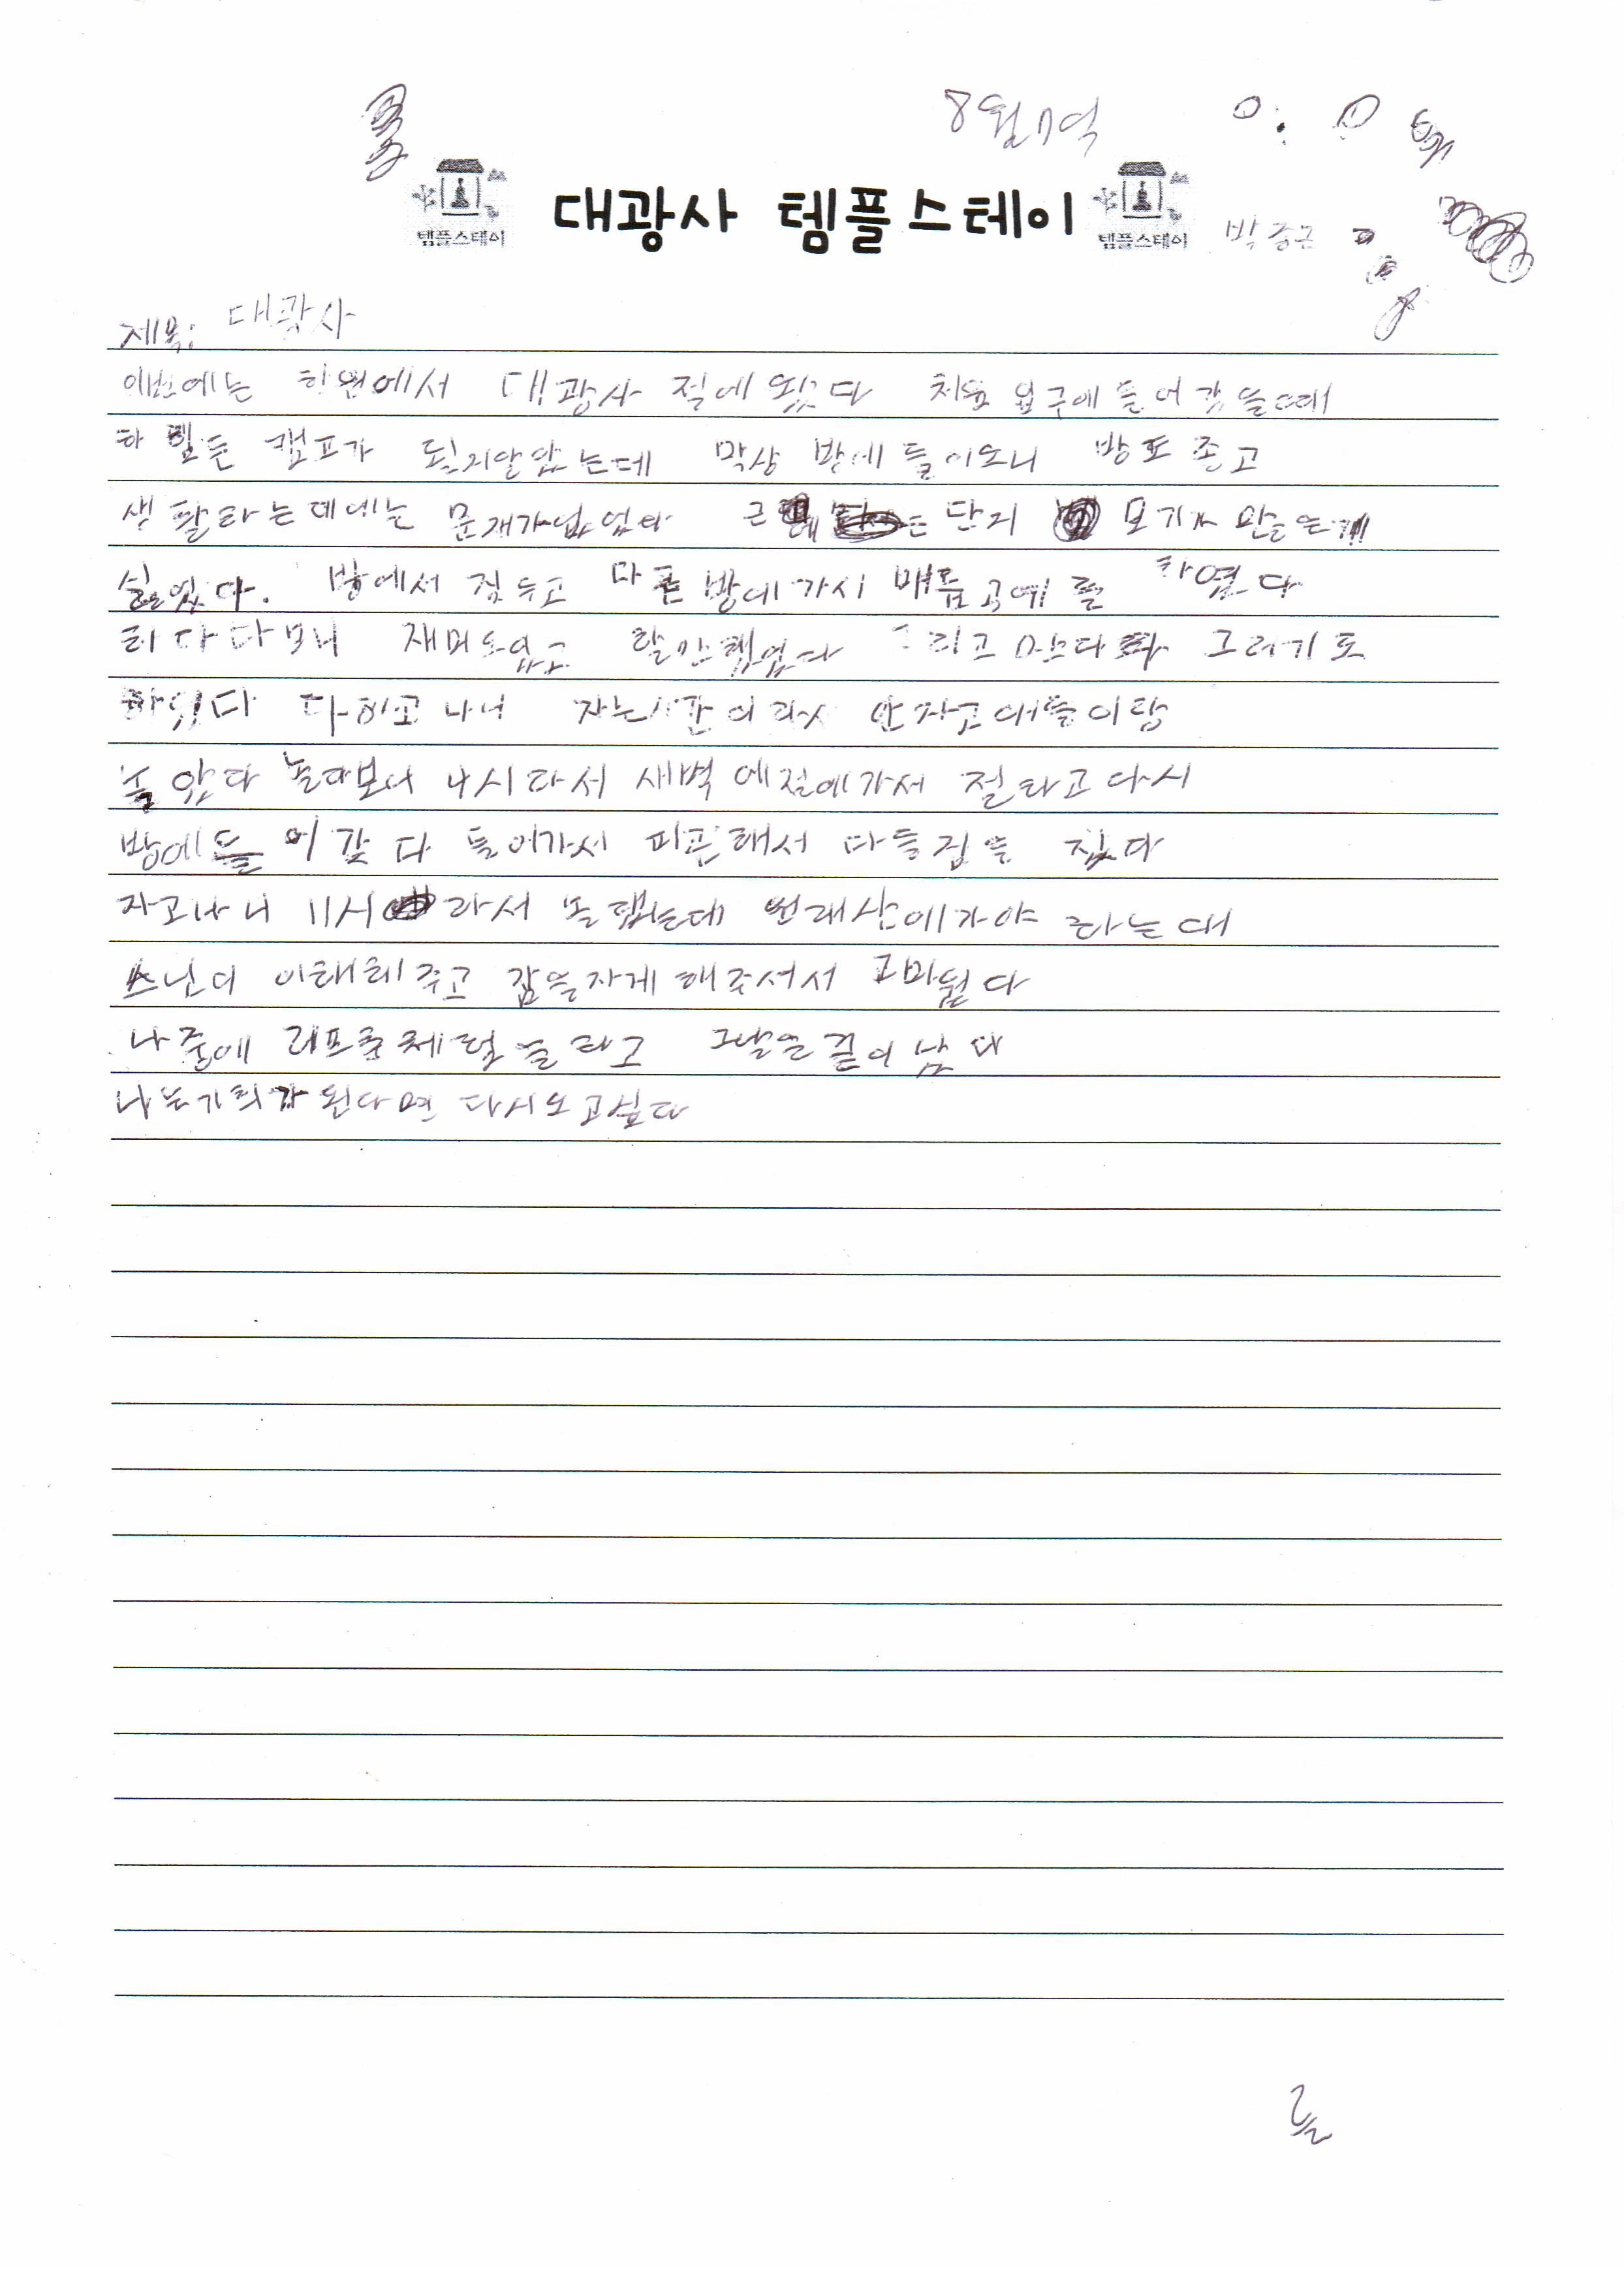 8월 7일
템플스테이 대광사 템플스테이 템플스테이
제목: 대광사
이번에는 학원에서 대광사 절에 왔다 처음 입구에 들어갔을때
캠프가 되지않았는데 막상 방에 들어오니 방도 좋고
생활하는데에는 문재가없었다 근데 단지 모기가 많은게
싫었다. 방에서 짐두고 다른방에가서 매듭공예를 하였다
하다다보니 재미도있고 할만했었다 그리고 그리기도
하였다 다하고나니 자는시간이라서 안자고애들이랑
놀았다 놀다보니 4시라서 새벽에절에가서 절하고다시
방에들어갔다 들어가서 피곤해서 다들잠을 잤다
자고나니 11시라서 놀랬는데 원래산에가야 하는대
스님이 이해해주고 잠을자게해주셔서 고마웠다
나중에 체험을하고 그날은끝이났다
나는기회가된다면 다시오고싶다